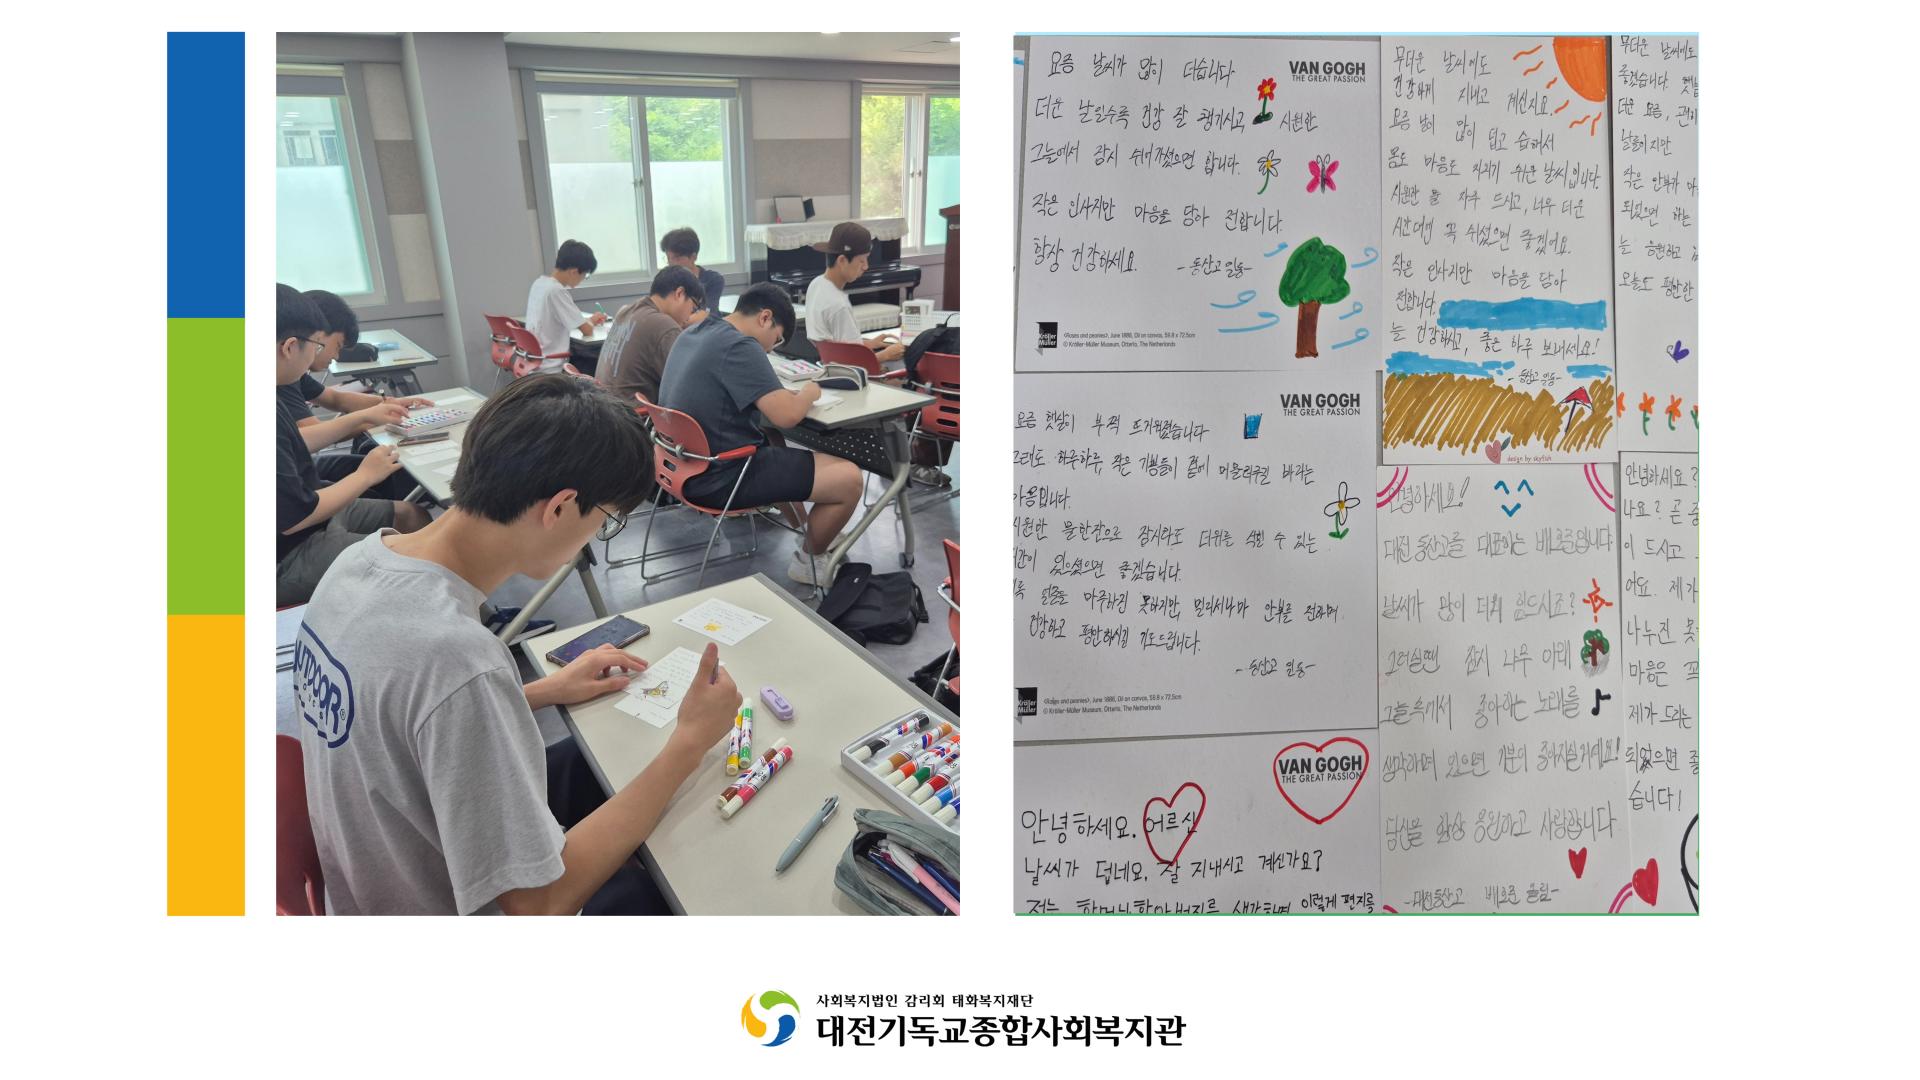 OUTDOOR
요즘 날씨가 많이 더습니다
VAN GOGH
THE GREAT PASSION
더운 날일수록 건강 잘 챙기시고, 시원한
그늘에서 잠시 쉬어가셨으면 합니다.
작은 인사지만 마음을 담아 전합니다.
항상 건강하세요. -동산고 일동-
Kröller
Müller
<Roses and peonies>, June 1886, Oil on canvas, 59.8 x 72.5cm
© Kröller-Müller Museum, Otterlo, The Netherlands
무더운 날씨에도
건강하게 지내고 계신지요.
요즘 날이 많이 덥고 습해서
몸도 마음도 지치기 쉬운 날씨입니다.
시원한 물 자주 드시고, 너무 더운
시간대엔 꼭 쉬셨으면 좋겠어요.
작은 인사지만 마음을 담아
전합니다.
늘 건강하시고, 좋은 하루 보내세요!
-동산고 일동-
design by skyfish
무더운 날씨에도
좋겠습니다. 햇살
더운 요즘,
날들이지만
작은 안부가
되었으면 하는
늘 응원하고
오늘도 평안한
VAN GOGH
THE GREAT PASSION
요즘 햇살이 부쩍 뜨거워졌습니다
그래도 하루하루, 작은 기쁨들이 곁에 머물러주길 바라는
마음입니다.
시원한 물 한잔으로 잠시라도 더위를 식힐 수 있는
시간이 있으셨으면 좋겠습니다.
얼굴을 마주하진 못하지만, 멀리서나마 안부를 전하며
건강하고 평안하시길 기도드립니다.
-동산고 일동-
Kröller
Müller
<Roses and peonies>, June 1886, Oil on canvas, 59.8 x 72.5cm
© Kröller-Müller Museum, Otterlo, The Netherlands
안녕하세요!
대전 동산고를 대표하는 배효준입니다.
날씨가 많이 더워 힘드시죠?
그러실땐 잠시 나무 아래
그늘 속에서 좋아하는 노래를
생각하며 있으면 기분이 좋아지실거에요!
당신을 항상 응원하고 사랑합니다
-대전동산고 배효준 올림-
안녕하세요?
나요? 곧
이 드시고
어요. 제가
나누진 못
마음은
제가 드리는
되었으면 좋
습니다!
VAN GOGH
THE GREAT PASSION
안녕하세요. 어르신
날씨가 덥네요. 잘 지내시고 계신가요?
저는 할머니 할아버지를 생각하면 이렇게 편지를
사회복지법인 감리회 태화복지재단
대전기독교종합사회복지관